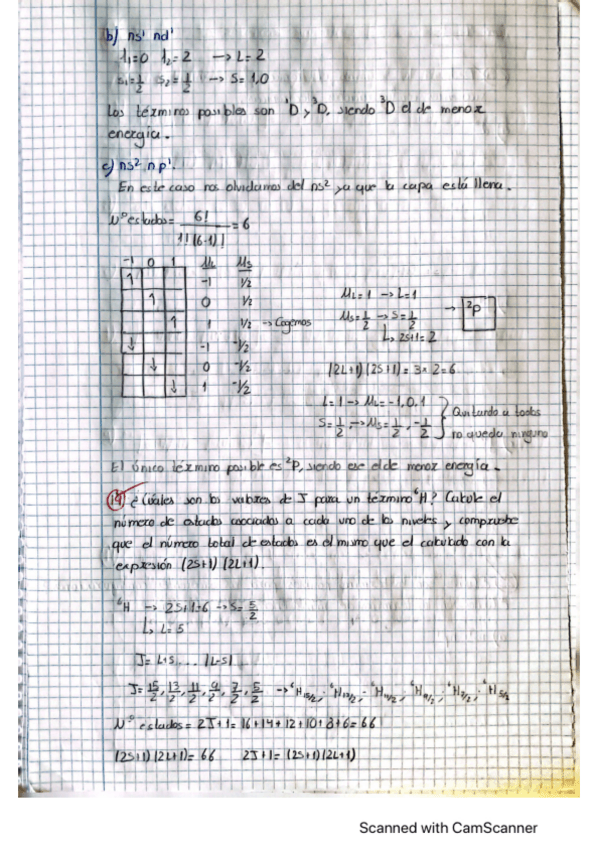 b) ns¹ nd¹
l₁=0 l₂=2 → L=2
s₁=1/2 s₂=1/2 → S=1,0
Los términos posibles son ¹D y ³D, siendo ³D el de menor
energía.
c) ns² np¹.
En este caso nos olvidamos del ns² ya que la capa está llena.
Nº estados = 6! / 1!(6-1)! = 6
-1 0 1 ML MS
↑ -1 1/2
↑ 0 1/2
↑ 1 1/2 → Cogemos
↓ -1 -1/2
↓ 0 -1/2
↓ 1 -1/2
ML=1 → L=1
MS=1/2 → S=1/2 → ²P
↳ 2S+1=2
(2L+1)(2S+1)=3×2=6
L=1 → ML=-1,0,1
S=1/2 → MS=1/2, -1/2
Quitando a todos
no queda ninguno
El único término posible es ²P, siendo ese el de menor energía.
19 ¿Cuáles son los valores de J para un término ⁶H? Calcule el
número de estados asociados a cada uno de los niveles y compruebe
que el número total de estados es el mismo que el calculado con la
expresión (2S+1)(2L+1).
⁶H → 2S+1=6 → S=5/2
↳ L=5
J= L+S ... |L-S|
J=15/2, 13/2, 11/2, 9/2, 7/2, 5/2 → ⁶H15/2, ⁶H13/2, ⁶H11/2, ⁶H9/2, ⁶H7/2, ⁶H5/2
Nº estados = 2J+1= 16+14+12+10+8+6=66
(2S+1)(2L+1)=66 2J+1= (2S+1)(2L+1)
Scanned with CamScanner